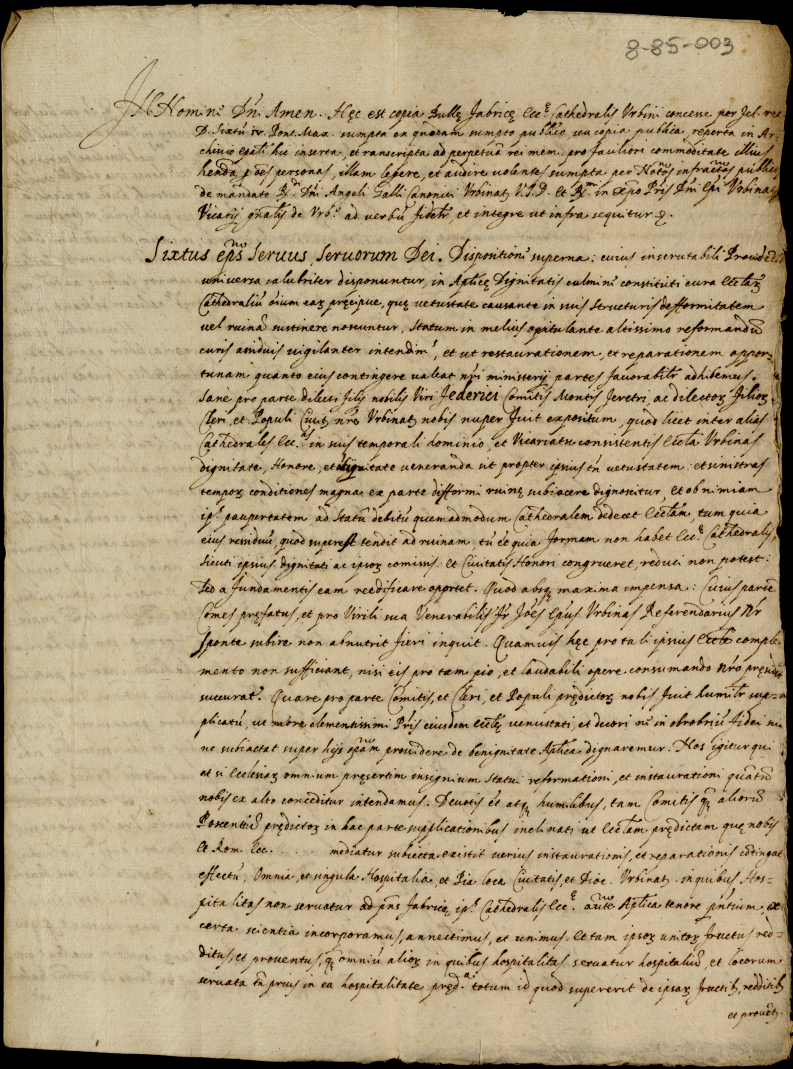 8-85-003
In Nomine Dñi Amen. Hęc est copia Bullę fabricę Eccę Cathedralis Urbini concesse per fel. rec
D. Sixtũ iv. Pont. Max. sumpta ex quodam sumpto publico, seu copia publica, reperta in Ar-
chivio hic inserta, et transcripta ad perpetuã rei mem. pro faciliori commoditate illius
personas, illam legere, et audire volentes, sumpta per infractos publico
de mandato Dñi Angeli Galli Canonici Urbinats V.I.D. et
Vicarij gñalis de Urbo ad verbũ fidelr et integre ut infra sequitur
Sixtus eps servus servorum Dei. Dispositione superna: cuius inscrutabili Providẽtia
universa salubriter disponuntur, in Aplicę Dignitatis culmine constituti cura
Cathedraliũ õium eaꝝ pręcipue, quę vetustate causante in suis structuris defformitatem
vel ruinã sustinere noscuntur, statum in melius opitulante altissimo reformandũ
curis assiduis vigilanter intendimˢ, et ut restaurationem, et reparationem oppor-
tunam quanto eius contingere valeat nr̃i ministerij partes favorabilr adhibemus.
Sanè pro parte dilecti filij nobilis Viri Federici Comitis Montis Feretri, ac dilectoꝝ filioꝝ
Cleri, et Populi Civit nr̃ę Urbinats nobis nuper fuit expositum, quod licet inter alias
Cathedrales Eccas in suis temporali dominio, et Vicariatu consistentes Ecclã Urbinas
dignitate, Honore, et antiquitate veneranda sit propter ipsius tñ vetustatem: et sinistras
tempoꝝ conditiones magna ex parte difformi ruinę subiacere dignoscitur, et ob nimiam
ipˢ paupertatem, ad Statũ debitũ quemadmodum Cathedralem dedecet Ecclãm, tum quia
eius residuũ, quod superest tendit ad ruinam, tũ et quia formam non habet Eccę Cathedralis,
sicuti ipsius dignitati ac ipsoꝝ comitis, et Civitatis Honori congrueret, reduci non potest:
sed a fundamentis eam reedificare oportet. Quod absq maxima impensa: Cuius partẽ
Comes pręfatus, et pro Virili sua Venerabilis Joẽs Epũs Urbinas Referendarius Nr̃
sponte subire non abnuerit fieri inquit. Quamvis hęc pro tali ipsius Ecclẽ comple-
mento non sufficiant, nisi eis pro tam pio, et laudabili opere consumando nr̃o pręsidio
succuratˢ. Quare pro parte Comitis, et Cleri, et Populi prędictoꝝ nobis fuit humilr sup-
plicatũ, ut more clementissimi Pr̃is eiusdem Ecclę venustati, et decori ne in obrobriũ fidei
ne subiaceat super hijs providere de benignitate Aplica dignaremur. Nos igitur qui
et si Ecclesiaꝝ omnium pręsertim insignium Statui reformationi, et instaurationi quãtũ
nobis ex alto conceditur intendamus. Devotis et atq humilibus, tam Comitis qˢ alioꝝ
Poscentiũ prędictoꝝ in hac parte supplicationibus inclinati ut Ecclãm prędictam quę nobis
et Rom. Ecc. . . . . mediatur subiecta existit verius instaurationis, et reparationis cõtingat
effectũ, Omnia, et singula Hospitalia, et Pia loca Civitatis, et Dioc. Urbinats in quibus Hos-
pitalitas non servatur ad pñs fabricę ipˢ Cathedralis Eccę Aplica tenore pñtium, ex
certa scientia incorporamus, annectimus, et unimus. Et tam ipsoꝝ unitoꝝ fructus red-
ditus, et proventus, qˢ omniũ alioꝝ in quibus hospitalitas servatur hospitaliũ, et locorum
servata tñ prius in ea hospitalitate pręda totum id quod supererit de ipsaꝝ fructib, redditib
et provẽt.